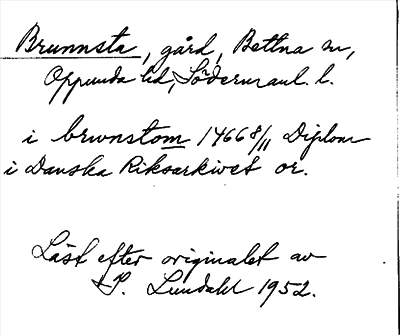 Brunnsta, gård, Bettna sn,
Oppunda hd, Söderманl. l.
i brwnstom 1466 8/11 Diplom
i Danska Riksarkivet or.
Läst efter originalet av
P. Lundahl 1952.